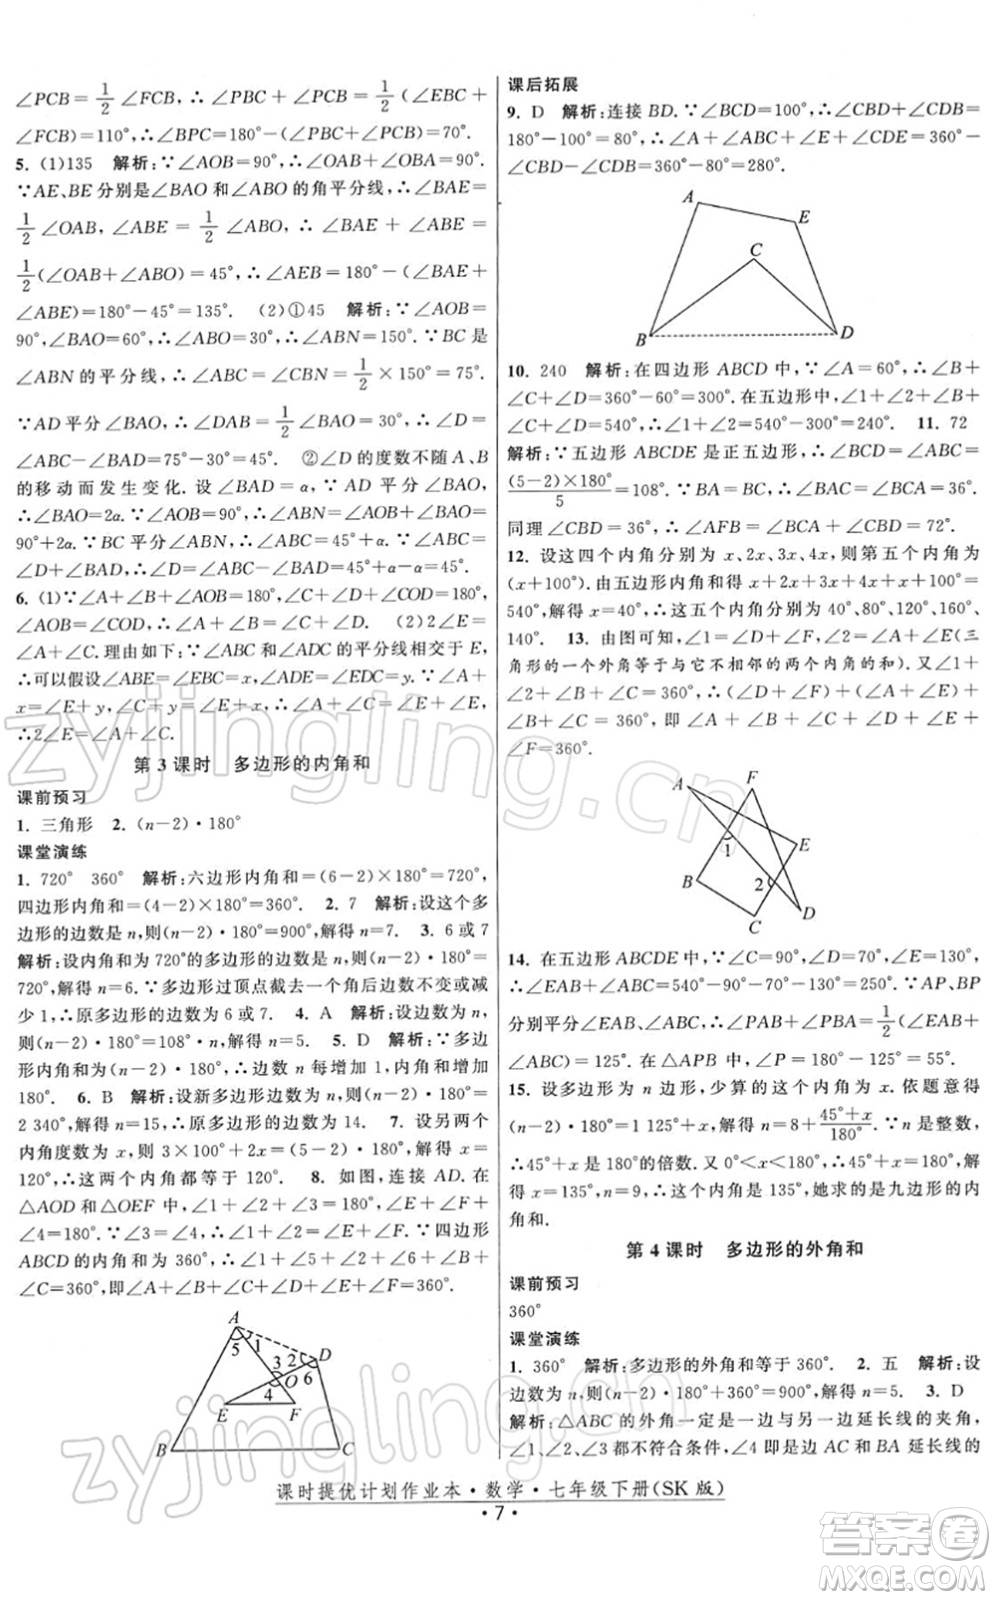 ∠PCB=1/2∠FCB,∴∠PBC+∠PCB=1/2(∠EBC+
∠FCB)=110°,∴∠BPC=180°-(∠PBC+∠PCB)=70°.
5. (1)135 解析:∵∠AOB=90°,∴∠OAB+∠OBA=90°.
∵AE、BE分别是∠BAO和∠ABO的角平分线,∴∠BAE=
1/2∠OAB,∠ABE=1/2∠ABO,∴∠BAE+∠ABE=
1/2(∠OAB+∠ABO)=45°,∴∠AEB=180°-(∠BAE+
∠ABE)=180°-45°=135°. (2)①45 解析:∵∠AOB=
90°,∠BAO=60°,∴∠ABO=30°,∴∠ABN=150°.∵BC是
∠ABN的平分线,∴∠ABC=∠CBN=1/2×150°=75°.
∵AD平分∠BAO,∴∠DAB=1/2∠BAO=30°,∴∠D=
∠ABC-∠BAD=75°-30°=45°. ②∠D的度数不随A、B
的移动而发生变化.设∠BAD=α,∵AD平分∠BAO,
∴∠BAO=2α.∵∠AOB=90°,∴∠ABN=∠AOB+∠BAO=
90°+2α.∵BC平分∠ABN,∴∠ABC=45°+α.∵∠ABC=
∠D+∠BAD,∴∠D=∠ABC-∠BAD=45°+α-α=45°.
6. (1)∵∠A+∠B+∠AOB=180°,∠C+∠D+∠COD=180°,
∠AOB=∠COD,∴∠A+∠B=∠C+∠D. (2)2∠E=
∠A+∠C.理由如下:∵∠ABC和∠ADC的平分线相交于E,
∴可以假设∠ABE=∠EBC=x,∠ADE=∠EDC=y.∵∠A+
x=∠E+y,∠C+y=∠E+x,∴∠A+∠C=∠E+∠E,
∴2∠E=∠A+∠C.
第3课时 多边形的内角和
课前预习
1. 三角形 2. (n-2)·180°
课堂演练
1. 720° 360° 解析:六边形内角和=(6-2)×180°=720°,
四边形内角和=(4-2)×180°=360°. 2. 7 解析:设这个多
边形的边数是n,则(n-2)·180°=900°,解得n=7. 3. 6或7
解析:设内角和为720°的多边形的边数是n,则(n-2)·180°=
720°,解得n=6.∵多边形过顶点截去一个角后边数不变或减
少1,∴原多边形的边数为6或7. 4. A 解析:设边数为n,
则(n-2)·180°=108°·n,解得n=5. 5. D 解析:∵多边
形内角和为(n-2)·180°,∴边数n每增加1,内角和增加
180°. 6. B 解析:设新多边形边数为n,则(n-2)·180°=
2 340°,解得n=15,∴原多边形的边数为14. 7. 设另两个
内角度数为x,则3×100°+2x=(5-2)×180°,解得x=
120°,∴这两个内角都等于120°. 8. 如图,连接AD.在
△AOD和△OEF中,∠1+∠2+∠3=180°,∠E+∠F+
∠4=180°.∵∠3=∠4,∴∠1+∠2=∠E+∠F.∵四边形
ABCD的内角和为360°,∴∠1+∠5+∠2+∠6+∠B+
∠C=360°,即∠5+∠E+∠F+∠6+∠B+∠C=360°.
A
5 1
3 2 D
O 6
4
E F
B C
课后拓展
9. D 解析:连接BD.∵∠BCD=100°,∴∠CBD+∠CDB=
180°-100°=80°,∴∠A+∠ABC+∠E+∠CDE=360°-
∠CBD-∠CDB=360°-80°=280°.
A
E
C
B D
10. 240 解析:在四边形ABCD中,∵∠A=60°,∴∠B+
∠C+∠D=360°-60°=300°.在五边形中,∠1+∠2+∠B+
∠C+∠D=540°,∴∠1+∠2=540°-300°=240°. 11. 72
解析:∵五边形ABCDE是正五边形,∴∠BCD=∠ABC=
(5-2)×180°/5=108°.∵BA=BC,∴∠BAC=∠BCA=36°.
同理∠CBD=36°,∴∠AFB=∠BCA+∠CBD=72°.
12. 设这四个内角分别为x、2x、3x、4x,则第五个内角为
(x+100°).由五边形内角和得x+2x+3x+4x+x+100°=
540°,解得x=40°,∴这五个内角分别为40°、80°、120°、160°、
140°. 13. 由图可知,∠1=∠D+∠F,∠2=∠A+∠E(三
角形的一个外角等于与它不相邻的两个内角的和).∵∠1+
∠2+∠B+∠C=360°,∴(∠D+∠F)+(∠A+∠E)+
∠B+∠C=360°,即∠A+∠B+∠C+∠D+∠E+
∠F=360°.
A F
1 E
B 2
C D
14. 在五边形ABCDE中,∵∠C=90°,∠D=70°,∠E=130°,
∴∠EAB+∠ABC=540°-90°-70°-130°=250°.∵AP、BP
分别平分∠EAB、∠ABC,∴∠PAB+∠PBA=1/2(∠EAB+
∠ABC)=125°.在△APB中,∠P=180°-125°=55°.
15. 设多边形为n边形,少算的这个内角为x.依题意得
(n-2)·180°=1 125°+x,解得n=8+(45°+x)/180°.∵n是整数,
∴45°+x是180°的倍数.又0°<x<180°,∴45°+x=180°,解
得x=135°,n=9,∴这个内角是135°,她求的是九边形的内
角和.
第4课时 多边形的外角和
课前预习
360°
课堂演练
1. 360° 解析:多边形的外角和等于360°. 2. 五 解析:设
边数为n,则(n-2)·180°+360°=900°,解得n=5. 3. D
解析:△ABC的外角一定是一边与另一边延长线的夹角,
∠1、∠2、∠3都不符合条件,∠4是边AC和BA延长线的
课时提优计划作业本·数学·七年级下册(SK版)
·7·
zyjingling.cn
zyjingling.cn
答案圈
MXQE.COM